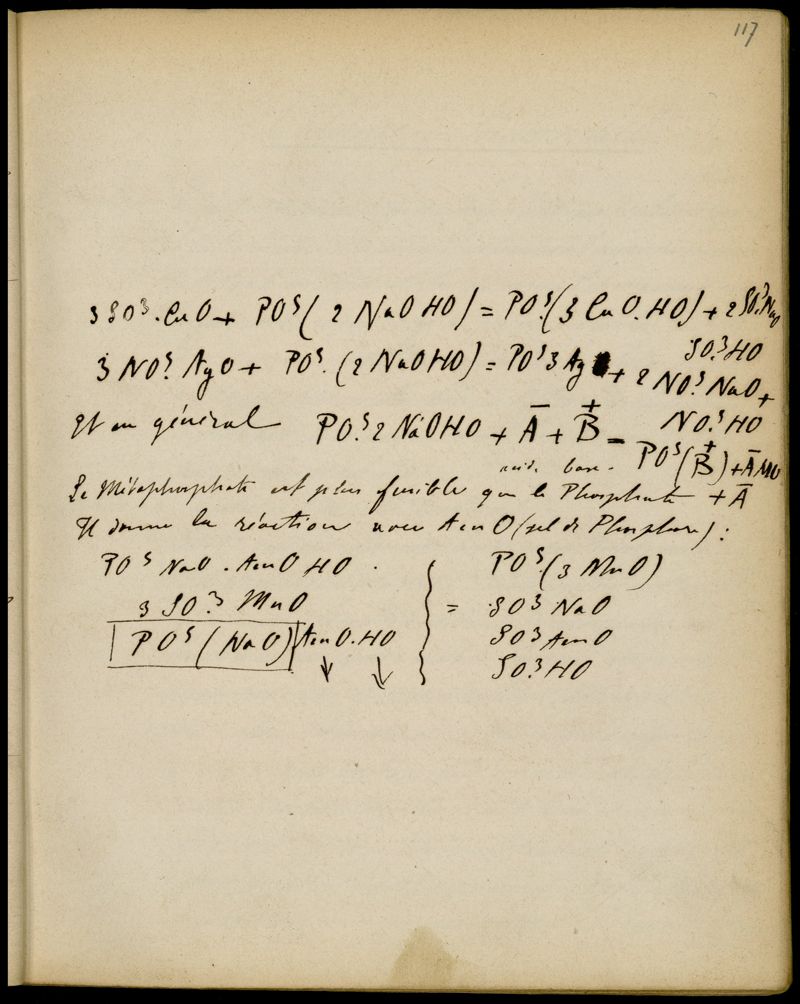 117
3 SO³.CuO + PO⁵(2 NaO HO) = PO⁵.(3 CuO.HO) + 2 SO³.NaO
SO³.HO
3 NO⁵. AgO + PO⁵. (2 NaO HO) = PO⁵ 3 Ag + 2 NO⁵. NaO +
NO⁵. HO
Et en général PO⁵. 2 NaOHO + Ā + B⁺ = PO⁵(B⁺) + Ā NaO
acide base + Ā
Le Métaphosphate est plus fusible que le Phosphate
Il donne la réaction avec AmO (sel de Phosphore) :
PO⁵ NaO . AmO HO
3 SO³. MnO
PO⁵ (NaO) AmO.HO
=
PO⁵.(3 MnO)
SO³ NaO
SO³ AmO
SO³. HO